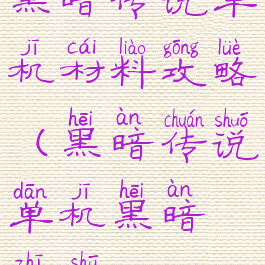 黑暗传说单
jī cái liào gōng lüè
机材料攻略
hēi àn chuán shuō
（黑暗传说
dān jī hēi àn
单机黑暗
zhī shū